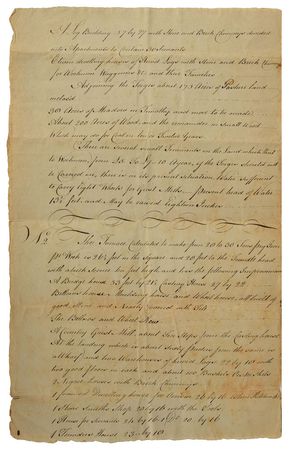 A Log Building 37 by 27 with Stone and Brick Chimneys divided
into Apartments to Contain 30 Servants
Eleven dwelling houses of Hewed Logs with Stone and Brick Chimneys
for Workmen Waggoners &c and their Families
Adjoining the Forges about 175 Acres of Pasture Land
inclosed
30 Acres of Meadow in Timothy and more to be made
About 200 Acres of Wood and the remainder in Small Wood
Which may do for Coal in
There are Several Small Tenements on the Land which Rent
to Workmen, from £3 To £10 A year, if the Forges should not
be Carried on, there is in its present Situation, Water Sufficient
to Carry Eight Wheels for Grist Mills present head of Water
13½ feet, and May be raised Eighteen Inches
No 2
The Furnace Calculated to make from 20 to 30 Tons
Week is 26½ feet in the Square and 20 feet to the Tunnell head
with which Stories ten feet high, and has the following Improvements
A Bridge house 33 feet by 28 Casting House 27 by 22
Bellows house, Moulding house and Wheel house, all built of
good Stone and Nearly covered with Slit
The Bellows and Wheel New
A Country Grist Mill about Ten Steps from the Casting house
At the landing which is about Sixty perches from the same is
a Wharf and two Warehouses of hewed Logs 22 by 18 with
two good floors in each and about 600 Bushels
2 Negroe houses with Brick Chimneys
1 framed Dwelling house for Founder 26 by 16
1 Stone Smiths Shop 20 by 16 with the Tools
1 House for Servants 24 by 16 1 Ditto 20 by 16
1 Founders House 23 by 16